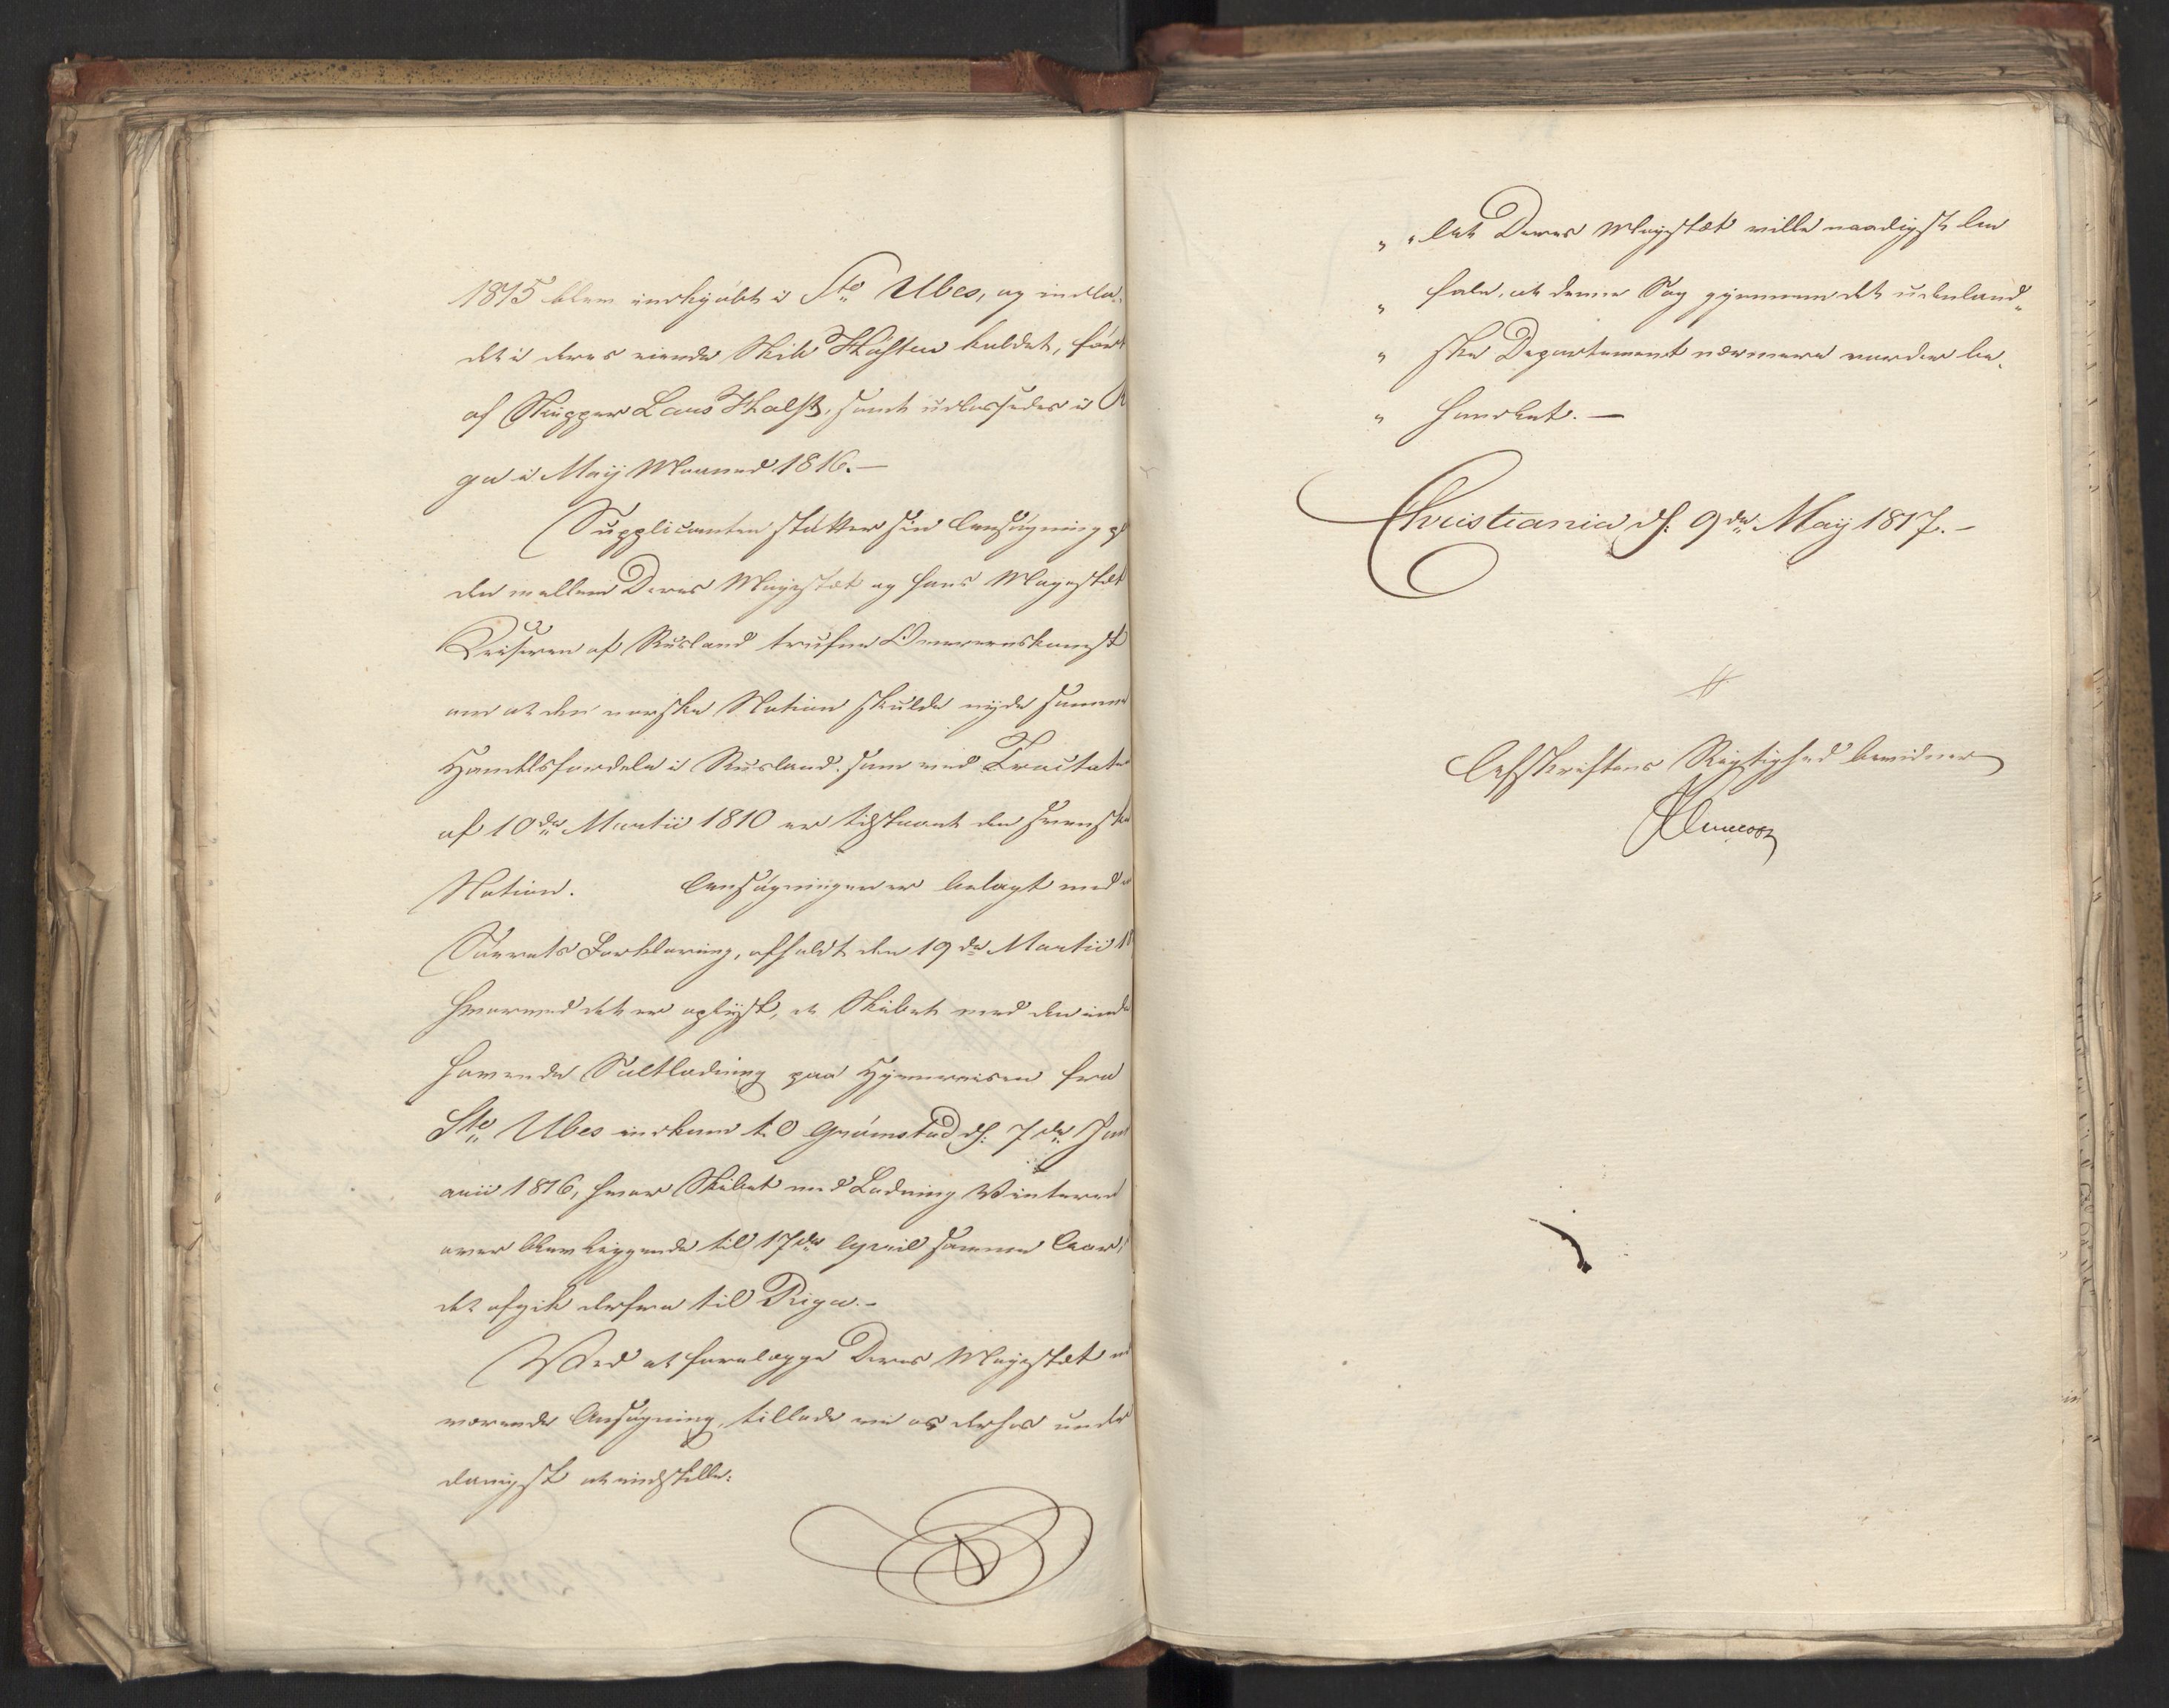 1815 blev indkjöbt i Ste Ubes, og indla-
det i deres eiende Skib Hösten kaldet, fört
af Skipper Lars Halst, samt udlossedes i R
ga i Maij Maaned 1816.—
Supplicanten stötter sin Ansögning p
den mellem Deres Majestæt og hans Majestæt
Keiseren af Rusland trufne Overenskomst
om at den norske Nation skulde nyde samme
Handelsfordele i Rusland, som ved Tractate
af 10de Martii 1810 er tilstaaet den svenske
Nation. Ansögningen er belagt med e
Söerets Forklaring, afholdt den 19de Martii 18
hvorved det er oplyst, at Skibet med den inde
havende Saltladning paa Hjemreisen fra
Ste Ubes indkom til Grömstad d: 7de Jan
uarii 1816, hvor Skibet med Ladning Vinteren
over blev liggende til 17de April samme Aar,
det afgik derfra til Riga.-
Ved at forelægge Deres Majestæt nær
værende Ansögning, tillade vi os derhos under
danigst at indstille:
„ „At Deres Majestæt ville naadigst be
„ fale, at denne Sag gjennem det udenland-
„ ske Departement nærmere vorder be-
„ handlet.—
Christiania d: 9de Maij 1817.-
Afskriftens Rigtighed bevidner